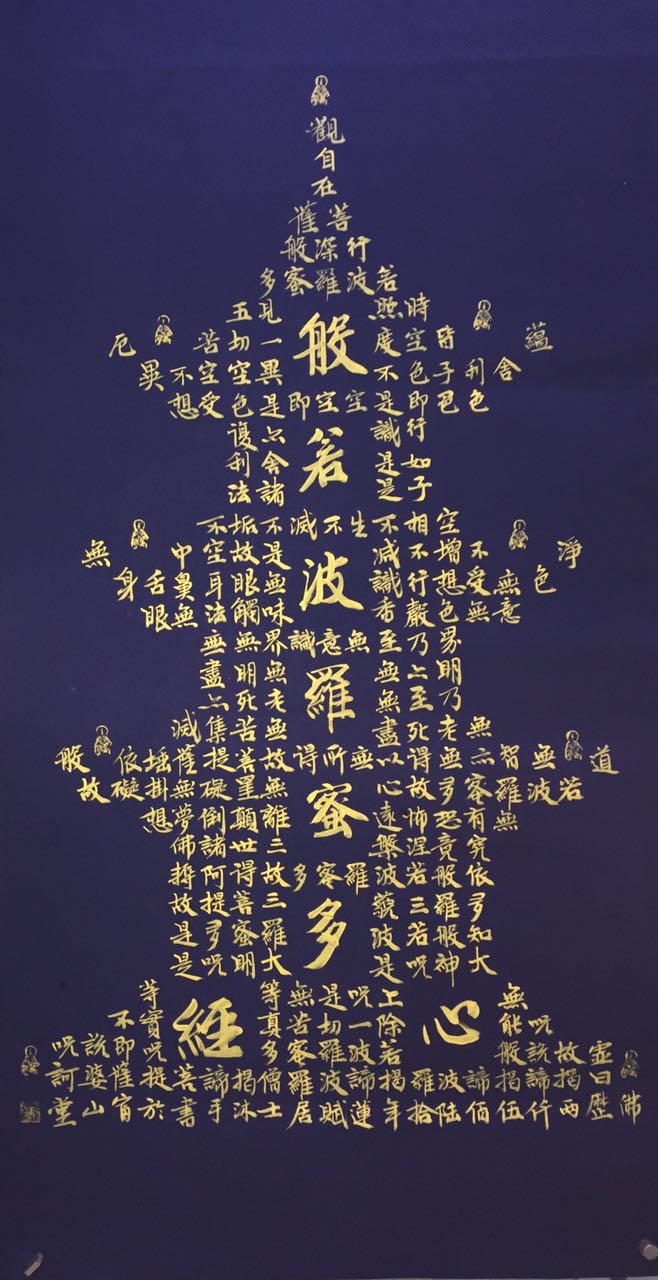 觀
自
在
菩薩
行深般
若波羅蜜多
時照見五
蘊皆空度一切苦厄
般
舍利子色不異空不異
色色即是空空即是色受想
行識亦復
若
如是舍利
子是諸法
空相不生不滅不垢不
淨不增不減是故空中無
波
色無受想行識無眼耳鼻舌身
意無色聲香味觸法無眼
界乃至無意識界無
明亦無無明盡
羅
乃至無老死亦
無老死盡無苦集滅
道無智亦無得以無所得故菩提薩埵依般
若波羅蜜多故心無罣礙無掛礙故
蜜
無有恐怖遠離顛倒夢想
究竟涅槃三世諸佛
依般若波羅蜜多故得阿耨
多羅三藐三菩提故
多
知般若波羅蜜多是
大神咒是大明咒是
無上咒是無等等
心經
咒能除一切苦真實不
虛故說般若波羅蜜多咒即說咒
曰揭諦揭諦波羅揭諦波羅僧揭諦菩提薩婆訶
佛歷兩仟伍佰陸拾年蓮賦居士沐手書於山堂